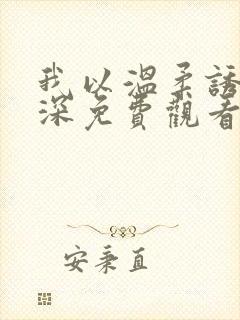 我以溫柔誘
深免費觀看
安秉直